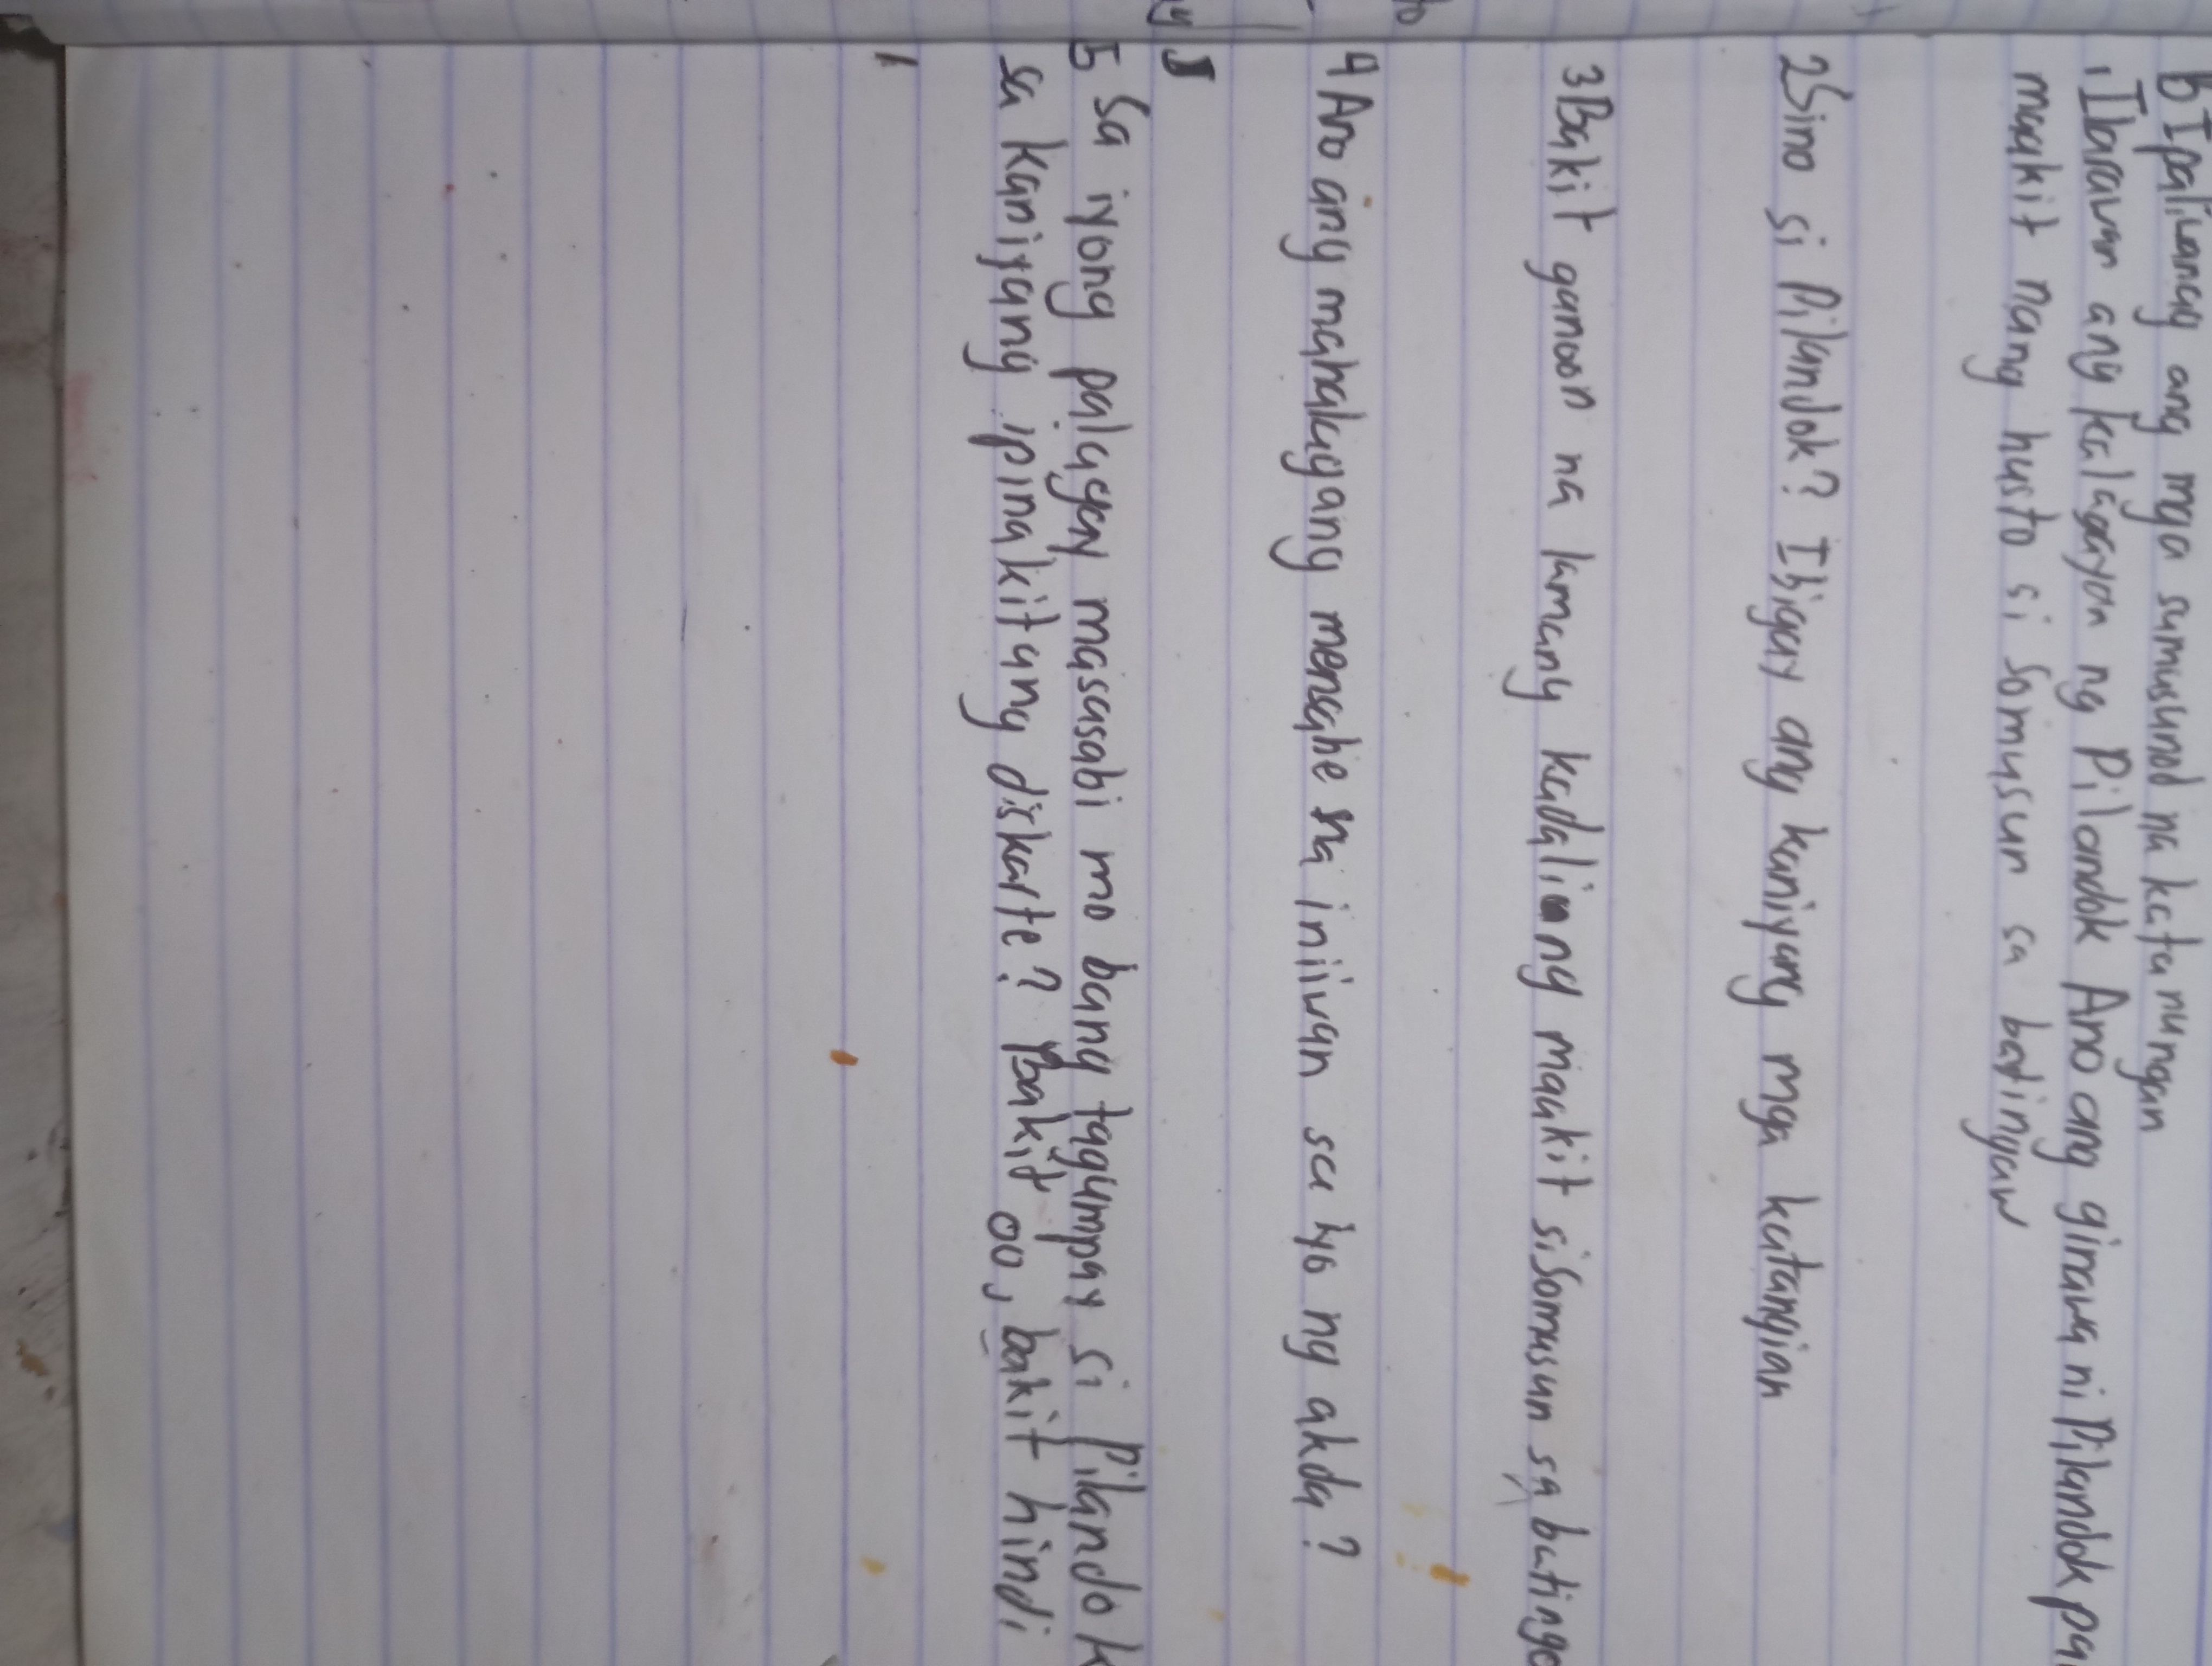 b Ipaliwanag ang mga sumusunod na katanungan
1 Ilarawan ang kalagayan ng Pilandok Ano ang ginawa ni Pilandok pa
maakit nang husto si Somusun sa batingaw
2 Sino si Pilandok? Ibigay ang kaniyang mga katangian
3 Bakit ganoon na lamang kadaling maakit si Somusun sa batinga
4 Ano ang mahalagang mensahe na iniiwan sa iyo ng akda?
5 Sa iyong palagay masasabi mo bang tagumpay si Pilandok
sa kaniyang ipinakitang diskarte? Bakit oo, bakit hindi
1